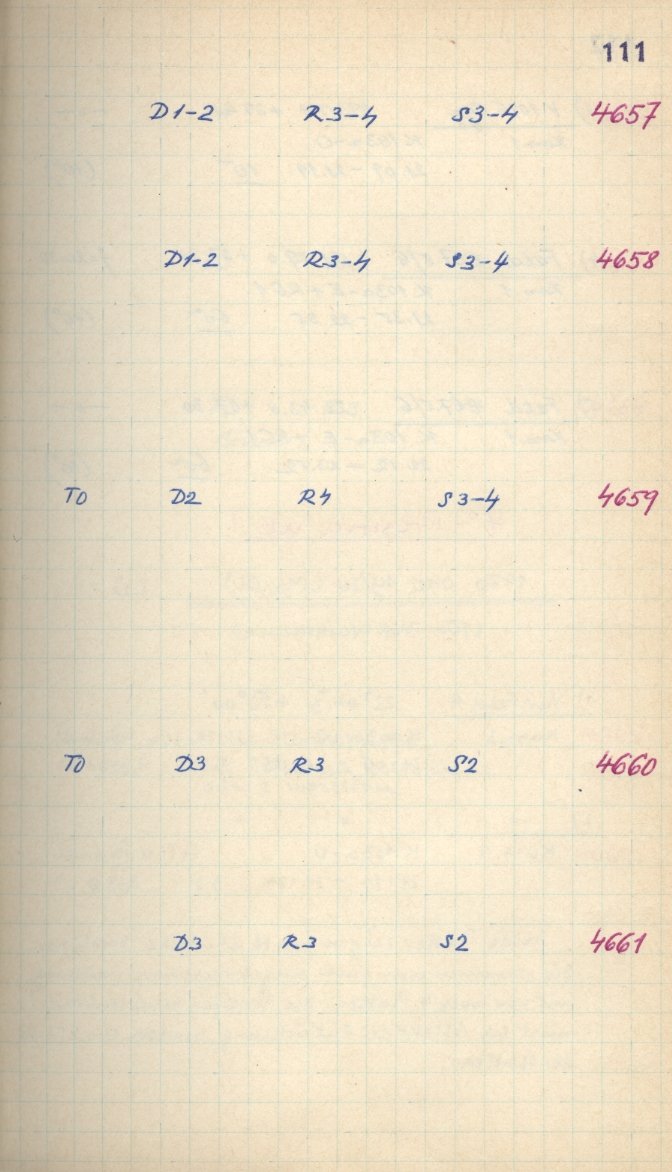 111
D1-2 R3-4 S3-4 4657
D1-2 R3-4 S3-4 4658
T0 D2 R4 S3-4 4659
T0 D3 R3 S2 4660
D3 R3 S2 4661